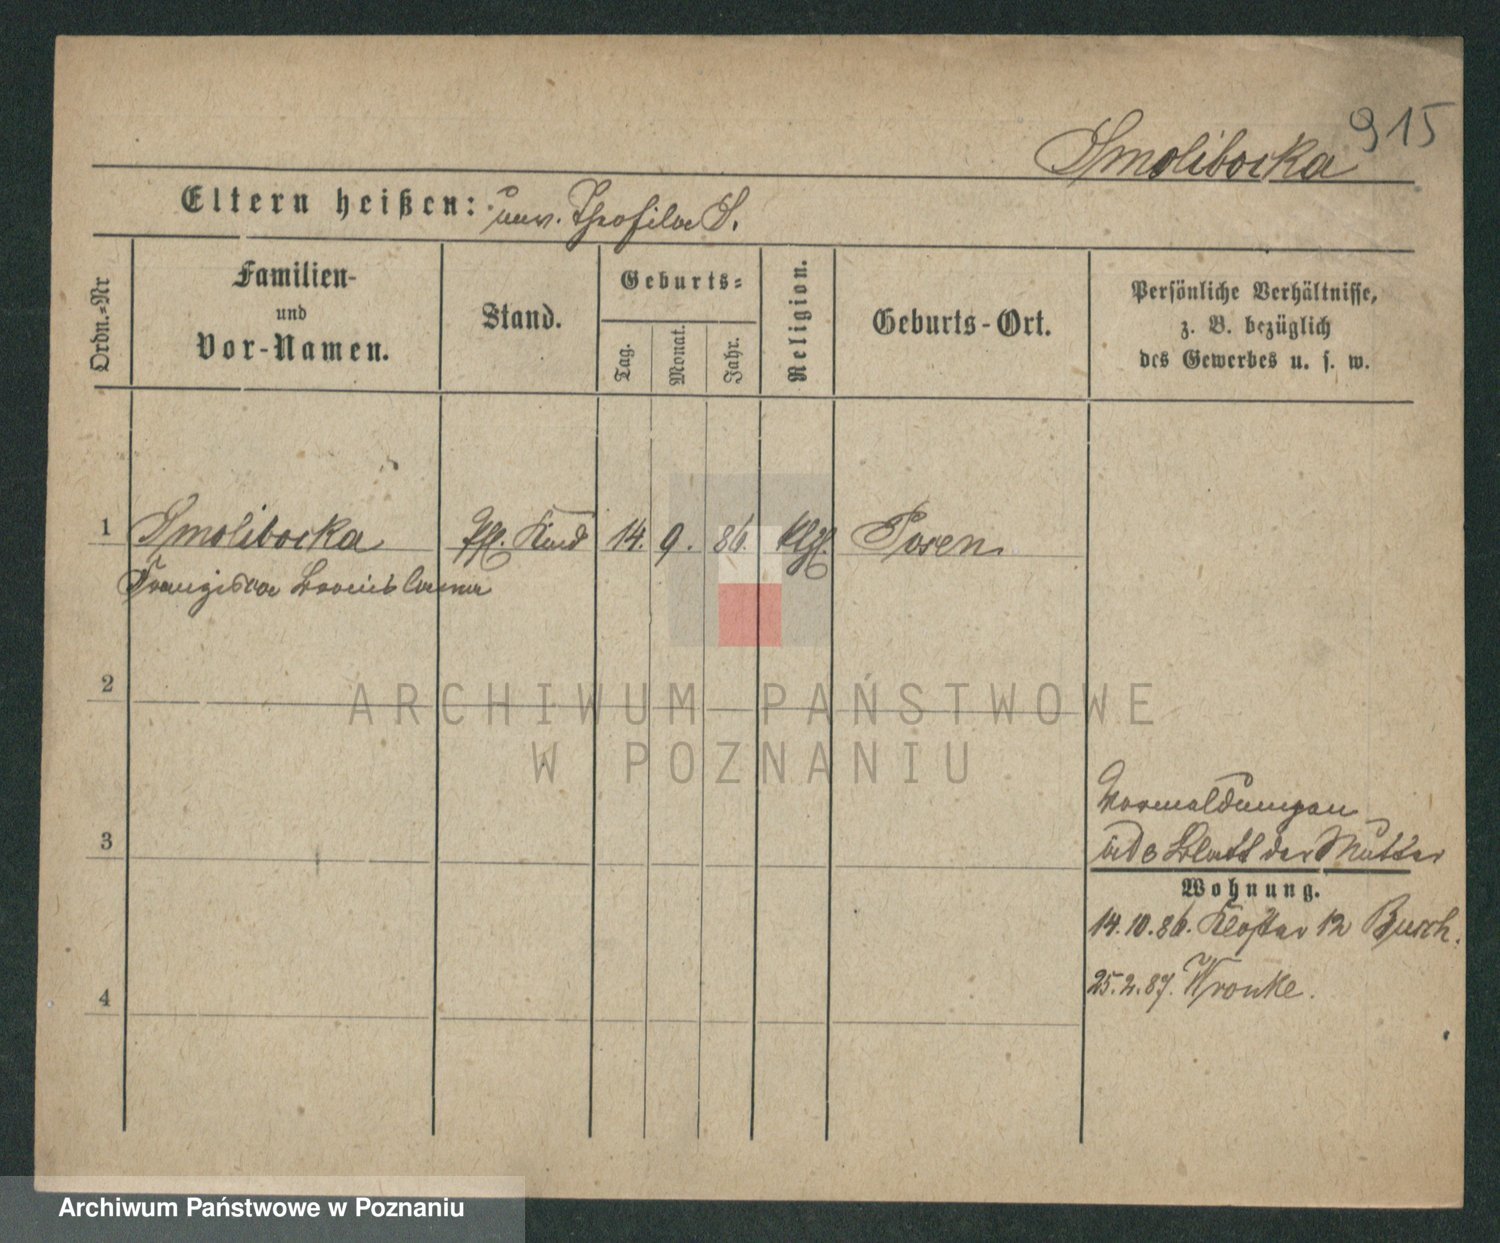 915
Smolibocka
Eltern heißen: unv. Theofila S.
Ordn.=Nr
Familien-
und
Vor-Namen.
Stand.
Geburts=
Tag.
Monat.
Jahr.
Religion.
Geburts-Ort.
Persönliche Verhältnisse,
z. B. bezüglich
des Gewerbes u. s. w.
1 Smolibocka Pfl. Kind 14. 9. 86. Klgl. Posen
Franziska Bronislawa
2
ARCHIWUM PAŃSTWOWE
W POZNANIU
3
Vormeldungen
Blatt der Mutter
Wohnung.
14.10.86. Kloster 12 Busch.
25.2.87. Wronke.
4
Archiwum Państwowe w Poznaniu